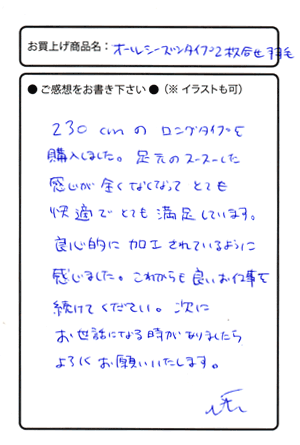 お買上げ商品名：オールシーズンタイプ2枚合せ羽毛
● ご感想をお書き下さい ●（※ イラストも可）
230cmの ロングタイプを
購入しました。足元のスースーした
感じが全くなくなって とても
快適で とても 満足しています。
良心的に 加工 されているように
感じました。これからも良いお仕事を
続けてください。次に
お世話になる時がありましたら
よろしく お願いいたします。